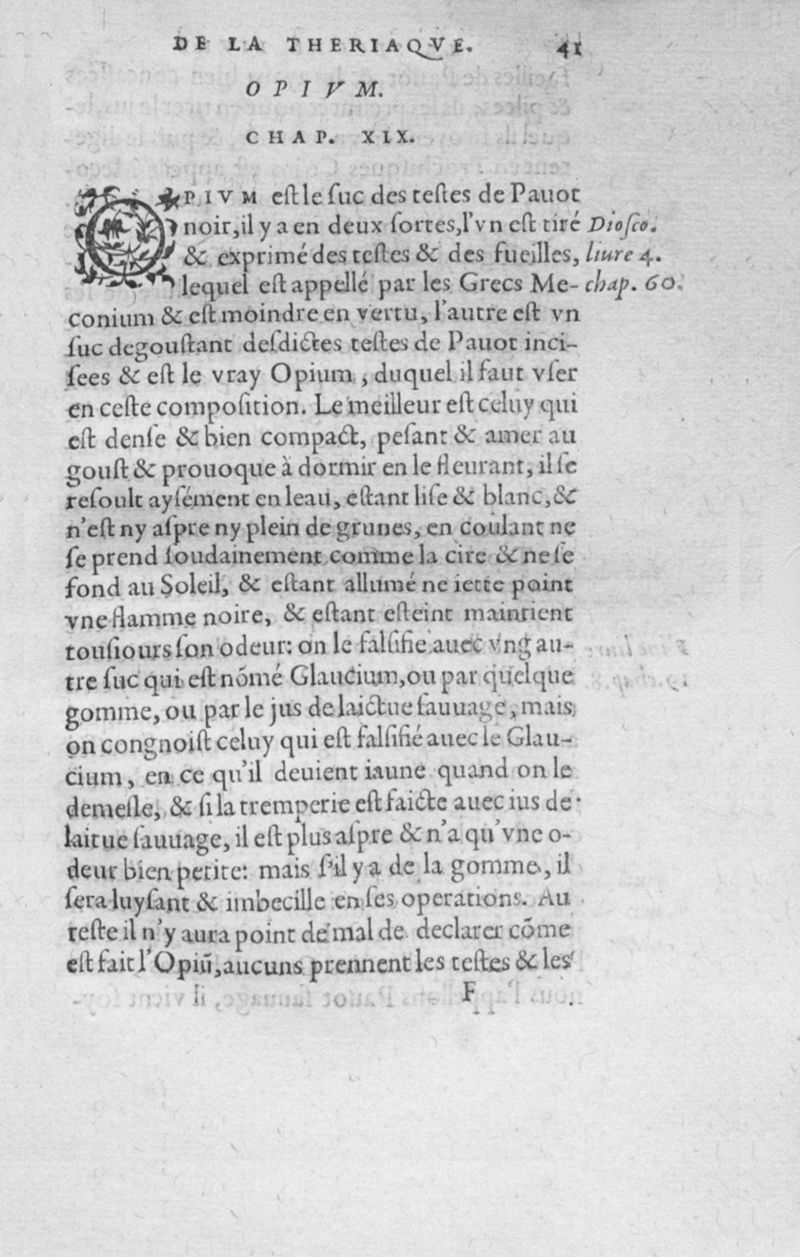 DE LA THERIAQVE. 41
OPIVM.
CHAP. XIX.
OPIVM eſt le ſuc des teſtes de Pauot
noir, il y a en deux ſortes, l'vn eſt tiré Dioſco.
& exprimé des teſtes & des fueilles, liure 4.
lequel eſt appellé par les Grecs Me- chap. 60.
conium & eſt moindre en vertu, l'autre eſt vn
ſuc degouſtant deſdictes teſtes de Pauot inci-
ſees & eſt le vray Opium, duquel il faut vſer
en ceſte compoſition. Le meilleur eſt celuy qui
eſt denſe & bien compact, peſant & amer au
gouſt & prouoque à dormir en le fleurant, il ſe
reſoult ayſément en leau, eſtant liſe & blanc, &
n'eſt ny aſpre ny plein de grunes, en coulant ne
ſe prend ſoudainement comme la cire & ne ſe
fond au Soleil, & eſtant allumé ne iette point
vne flamme noire, & eſtant eſteint maintient
touſiours ſon odeur: on le falſifie auec vng au-
tre ſuc qui eſt nōmé Glaucium, ou par quelque
gomme, ou par le jus de laictue ſauuage, mais
on congnoiſt celuy qui eſt falſifié auec le Glau-
cium, en ce qu'il deuient iaune quand on le
demeſle, & ſi la tremperie eſt faicte auec ius de
laitue ſauuage, il eſt plus aſpre & n'a qu'vne o-
deur bien petite: mais ſ'il y a de la gomme, il
ſera luyſant & imbecille en ſes operations. Au
reſte il n'y aura point de mal de declarer cōme
eſt fait l'Opiū, aucuns prennent les teſtes & les
F